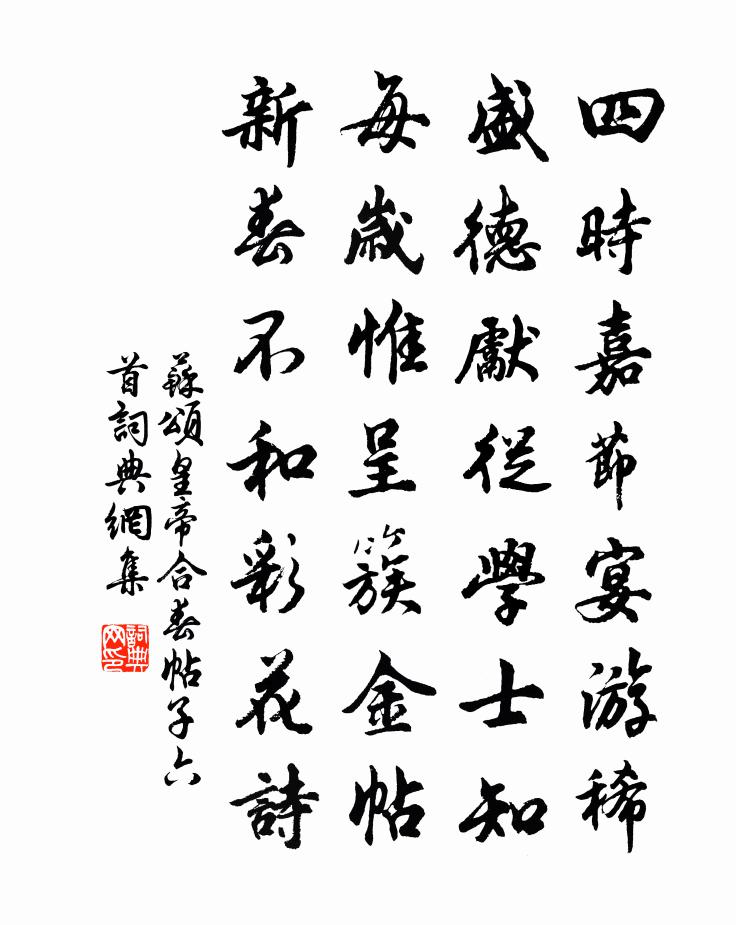 四時嘉節宴游稀
盛德獻從學士知
每歲惟呈簇金帖
新春不和彩花詩
蘇頌皇帝合春帖子六
首詞典網集
詞典
网印